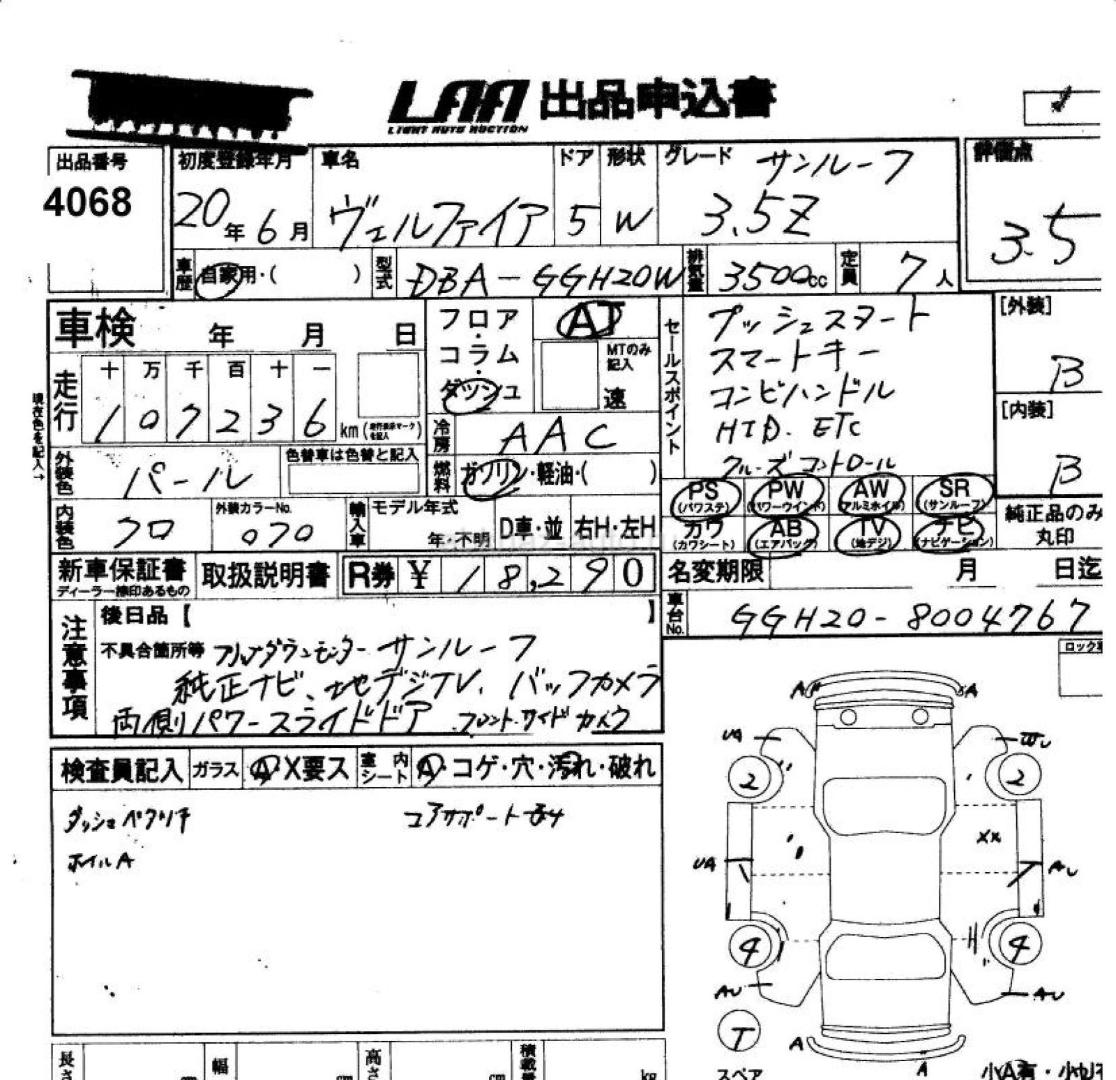 LAA 出品申込書
LIGHT AUTO AUCTION
出品番号 初度登録年月 車名 ドア 形状 グレード サンルーフ 評価点
4068 20年6月 ヴェルファイア 5 W 3.5Z 3.5
車歴 自家用・( ) 型式 DBA-GGH20W 排気量 3500cc 定員 7人
車検 年 月 日 フロア・コラム・ダッシュ AT
MTのみ記入 速
セールスポイント プッシュスタート [外装]
スマートキー B
コンビハンドル [内装]
HID. ETC B
クルーズコントロール
現在色を記入→
走行 十 万 千 百 十 一
1 0 7 2 3 6 km
冷房 AAC
外装色 パール 色替車は色替と記入 燃料 ガソリン・軽油・( )
PS (パワステ) PW (パワーウインド) AW (アルミホイル) SR (サンルーフ) 純正品のみ
カワ (カワシート) AB (エアバッグ) TV (地デジ) ナビ (ナビゲーション) 丸印
内装色 クロ 外装カラーNo. 070 輸入車 モデル年式 年・不明 D車・並 右H・左H
新車保証書 取扱説明書 R券 ¥ 18,290 名変期限 月 日迄
ディーラー捺印あるもの
車台No. GGH20-8004767
注意事項 後日品【 】
不具合箇所等 フリップダウンモニター サンルーフ
純正ナビ、地デジTV、バックカメラ
両側パワースライドドア フロント.サイドカメラ
検査員記入 ガラス A・X要ス 室内シート A・コゲ・穴・汚れ・破れ
ダッシュベタツキ コアサポート
ホイルA
A A
UA
2 2
XX
UA AU
4 4
AU AU
T A A
スペア 小A有・小
長さ cm 幅 cm 高さ cm 積載量 kg